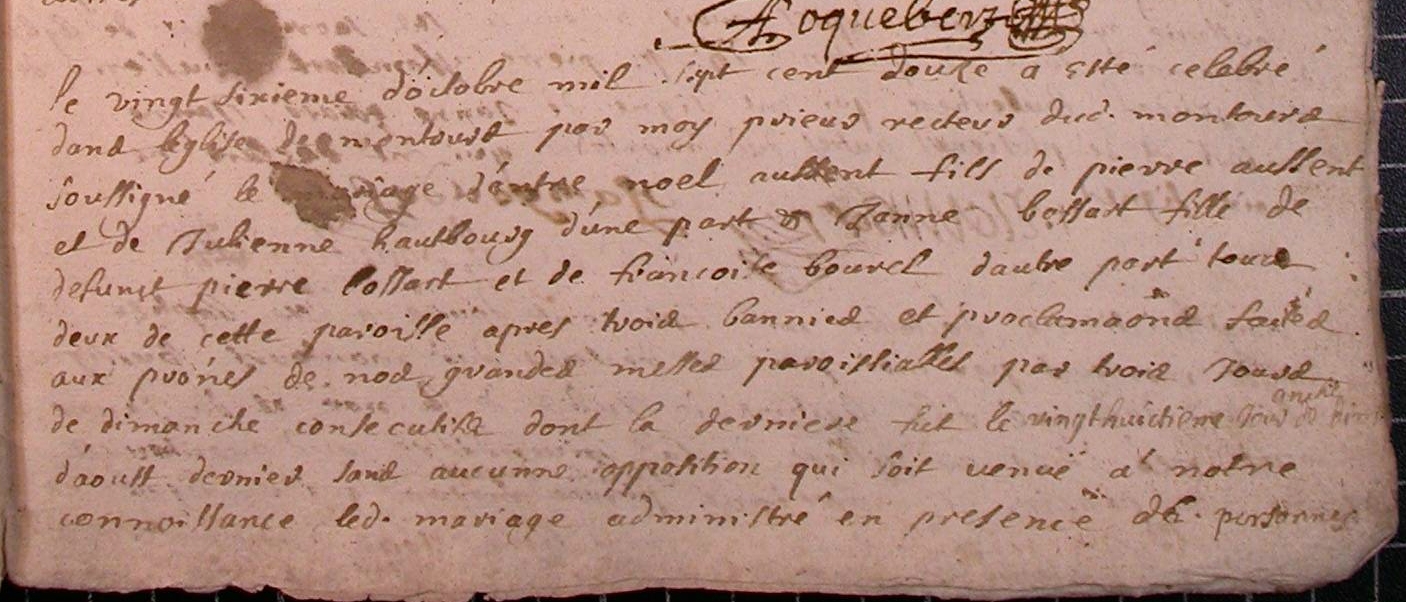 Roquebert
le vingt sixieme d'octobre mil sept cent douze a esté celebré
dans leglise de montours par moy prieur recteur dud. montours
soussigné le mariage d'entre noel aussent fils de pierre aussent
et de Julienne hautbourg d'une part & Janne bossart fille de
defunct pierre bossart et de francoise bourel dautre part tous
deux de cette paroisse apres trois bannies et proclamaons faites
aux prones de nos grandes messes paroissialles par trois Jours
de dimanche consecutifs dont la derniere fut le vingt huictieme Jour de
d'aoust dernier sans aucunne opposition qui soit venuë a notre
connoissance led. mariage administré en presence de personnes